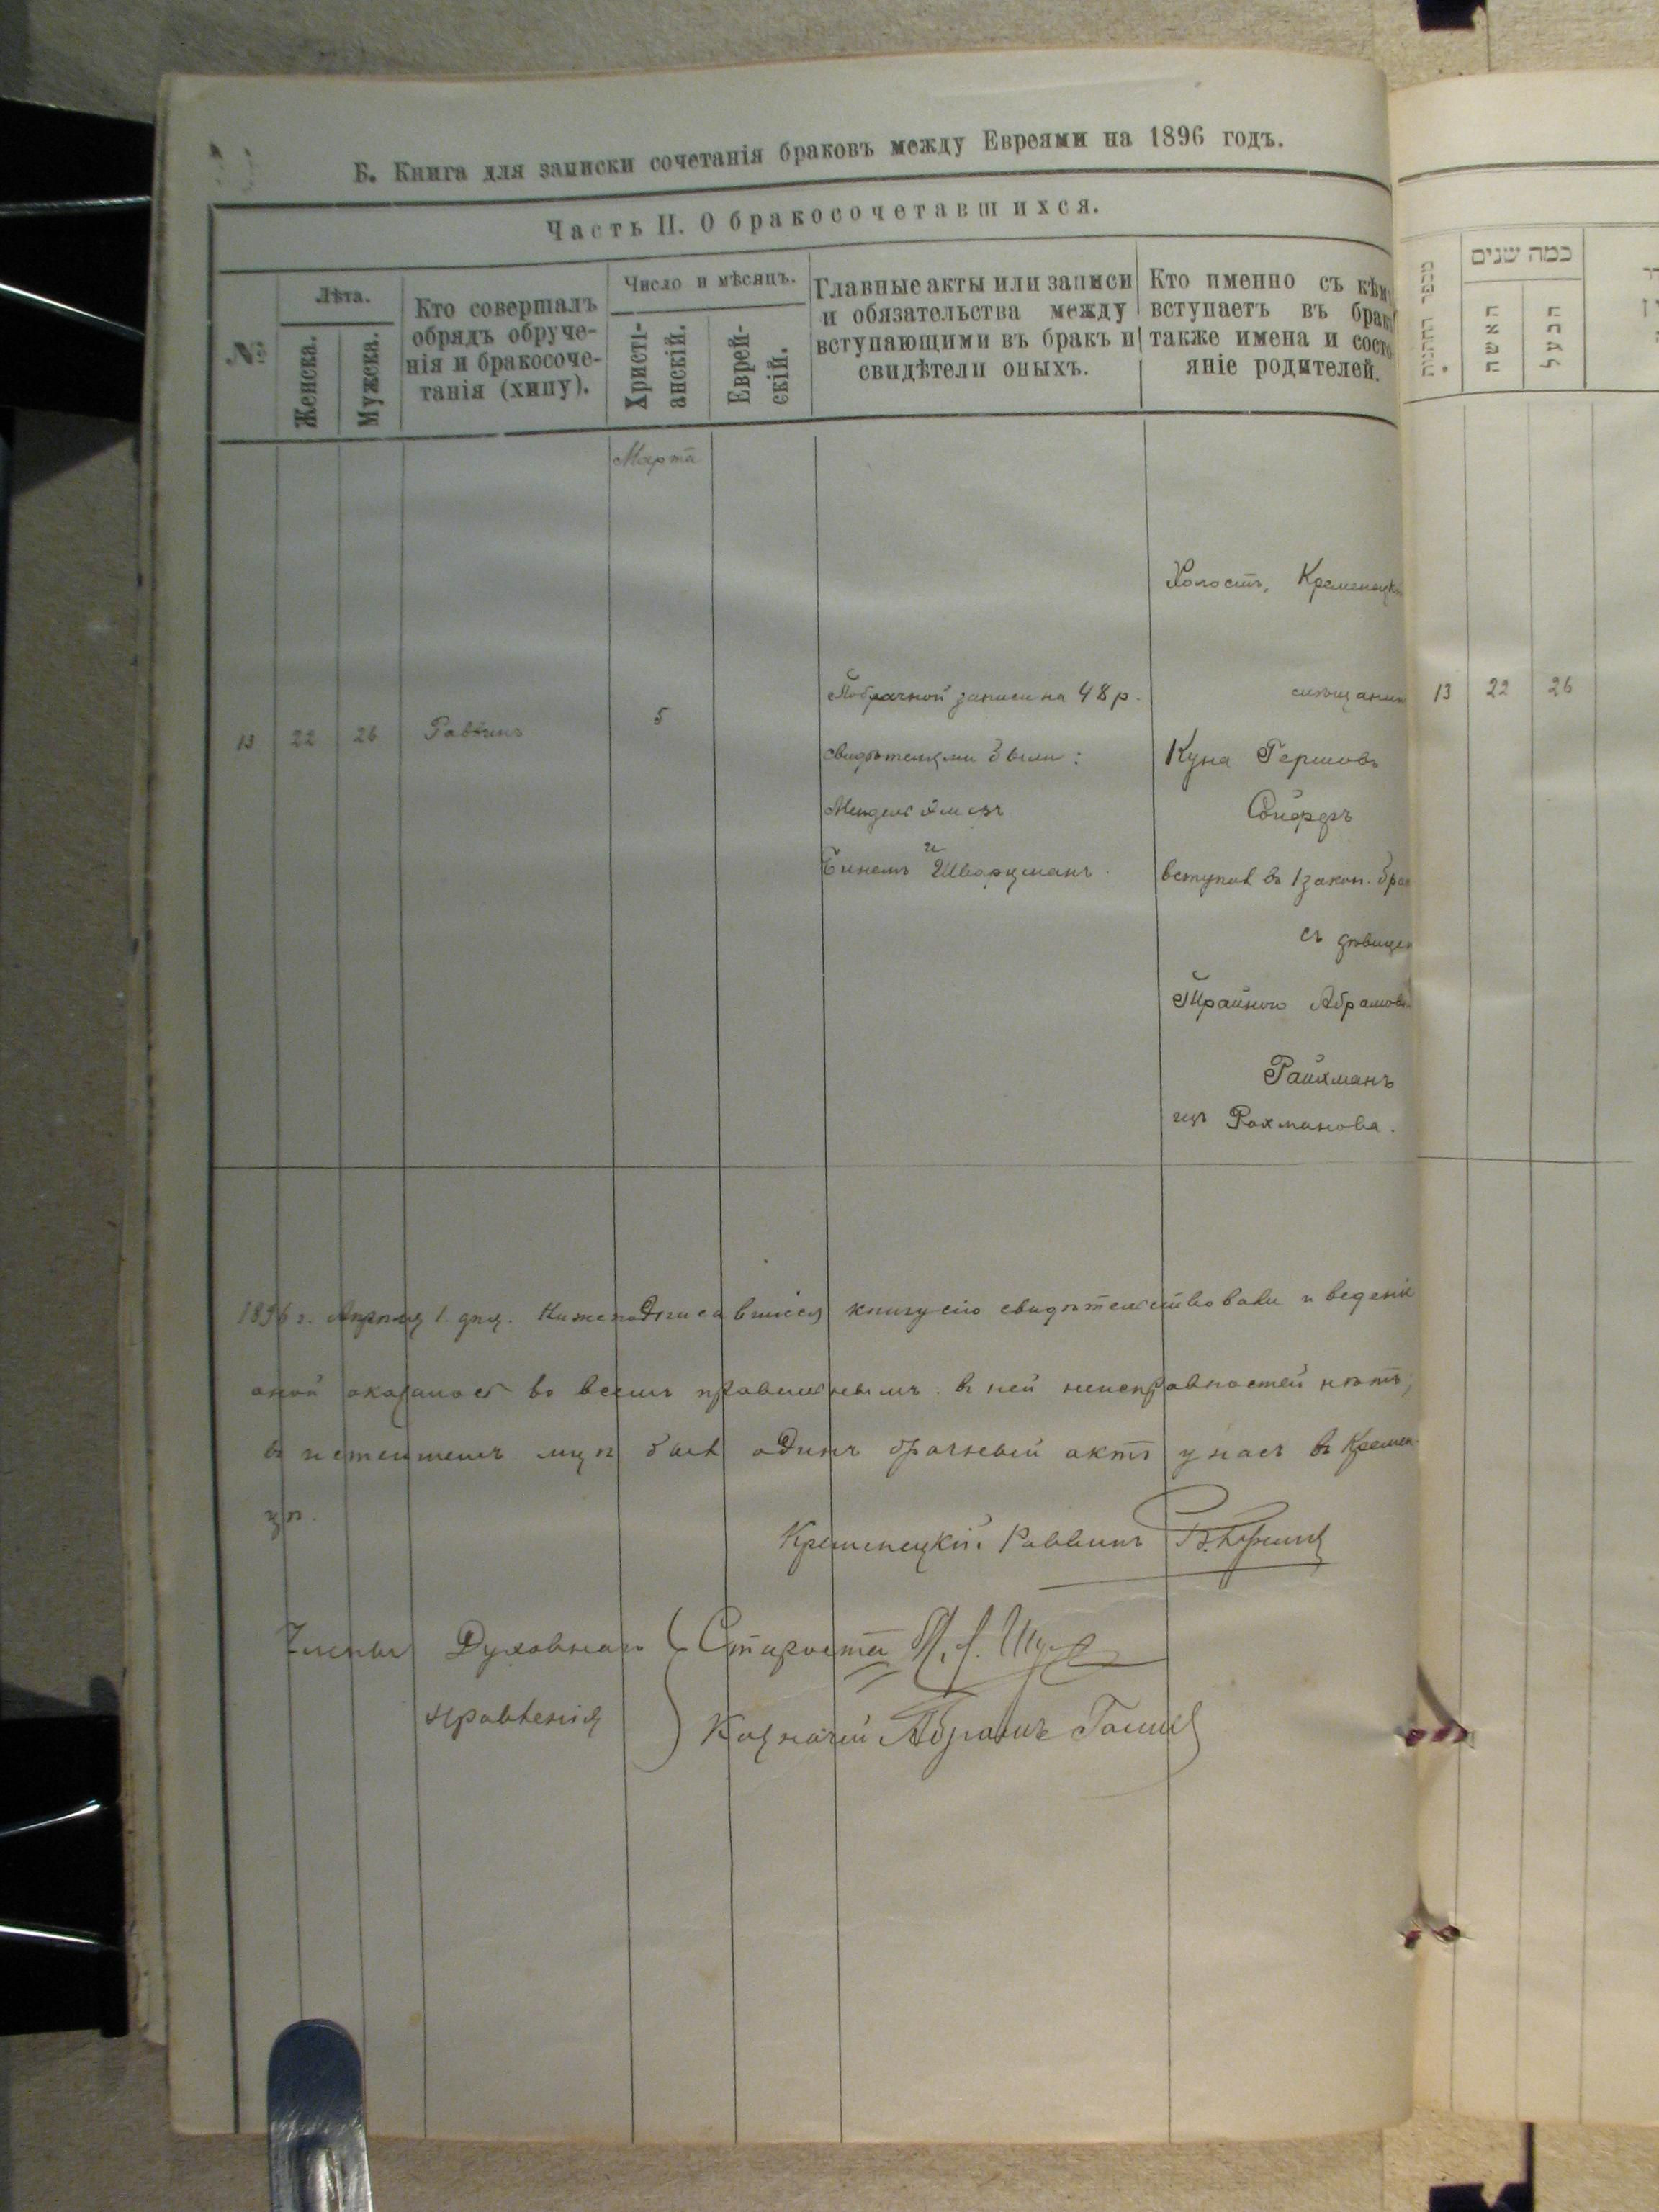 Б. Книга для записки сочетанія браковъ между Евреями на 1896 годъ.
Часть II. О бракосочетавшихся.
№
Лѣта.
Женска.
Мужска.
Кто совершалъ
обрядъ обруче-
нія и бракосоче-
танія (хипу).
Число и мѣсяцъ.
Христі-
анскій.
Еврей-
скій.
Главные акты или записи
и обязательства между
вступающими въ бракъ и
свидѣтели оныхъ.
Кто именно съ кѣмъ
вступаетъ въ бракъ
также имена и состо-
яніе родителей.
Марта
13
22
26
Раввинъ
5
Побрачной записи на 48 р.
свидѣтелями были:
Мендель
и
Бинемъ Шварцманъ.
Холостъ, Кременецкій
мѣщанин
Куна Гершовъ
вступил въ 1 закон. брак
съ дѣвицей
Абрамов
Райхманъ
изъ Рохманова.
1896 г. Апрѣля 1 дня. Нижеподписавшіеся книгу сію свидѣтельствовали и веденіе
оной оказалось во всемъ правильнымъ. въ ней неисправностей нѣтъ;
въ истекшемъ м-цѣ былъ одинъ брачный актъ у насъ въ Кремен-
цѣ.
Кременецкій Раввинъ
Члены Духовнаго
правленія
Староста
Казначей Абрамъ
מספר החתונה
כמה שנים
האשה
הבעל
13
22
26